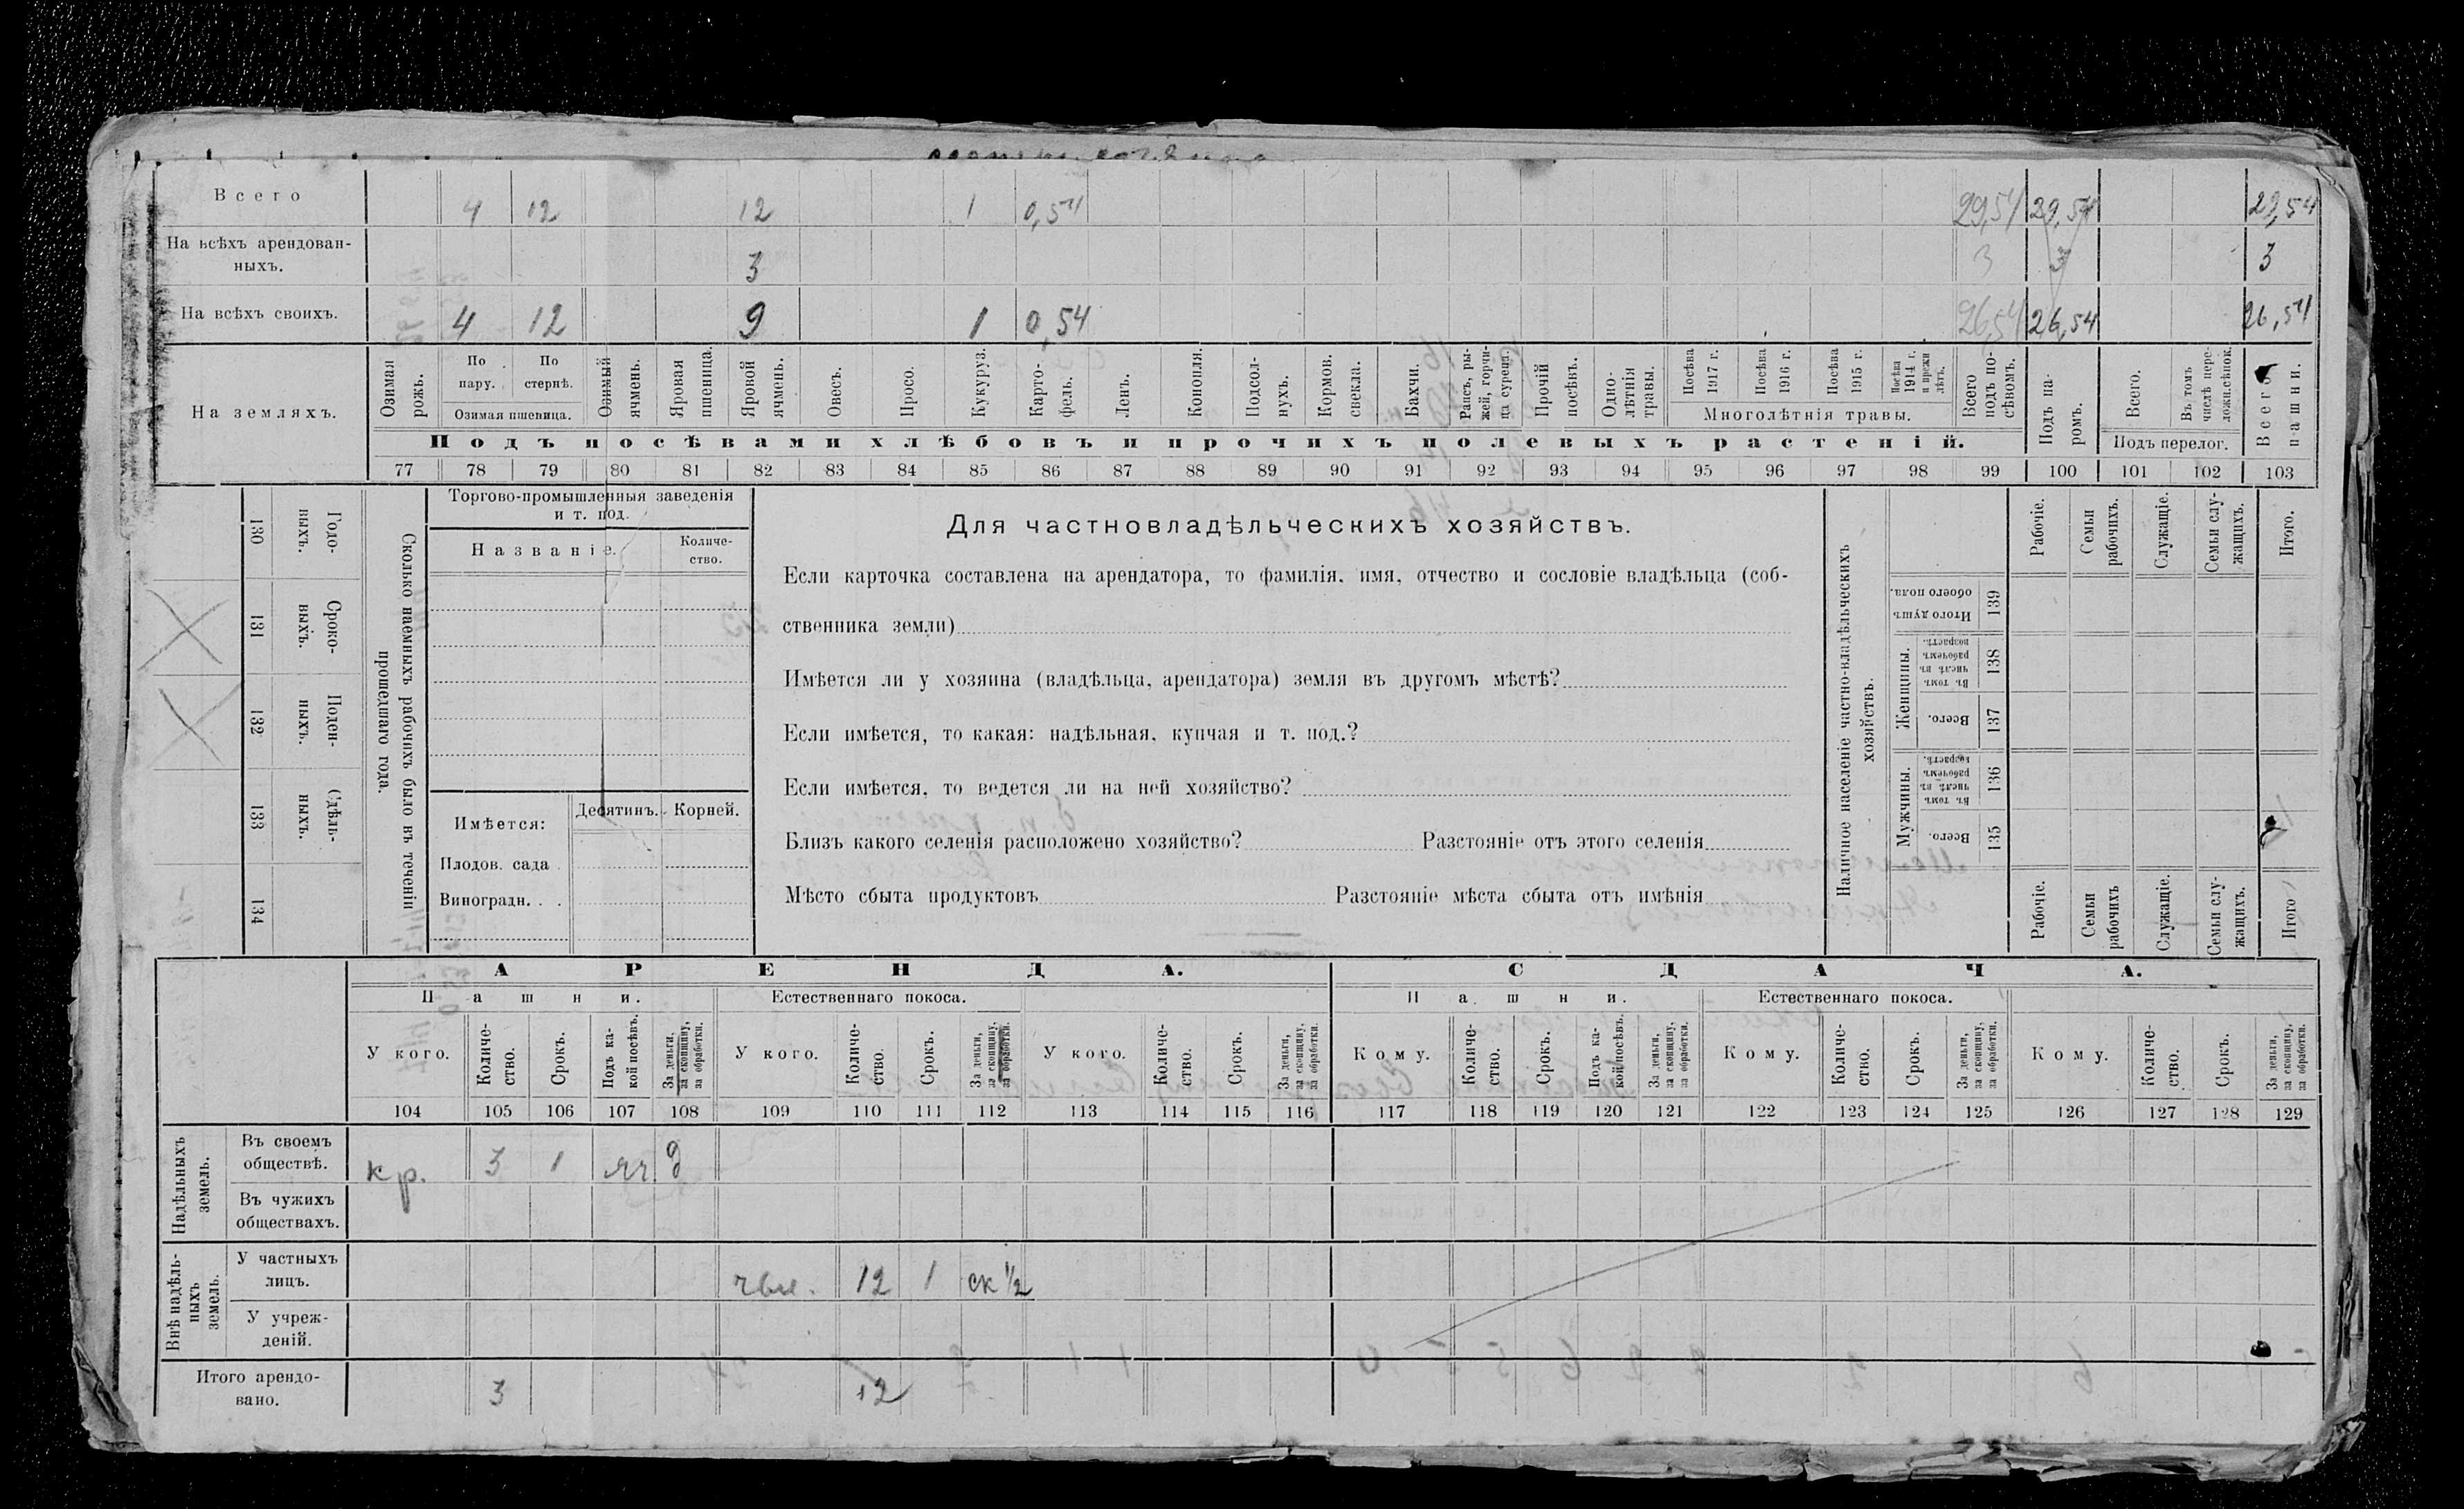 Всего 4 12 12 1 0,54 29,54 29,54 29,54
На всѣхъ арендован-
ныхъ. 3 3 3 3
На всѣхъ своихъ. 4 12 9 1 0,54 26,54 26,54 26,54
На земляхъ.
Озимая рожь.
По пару.
По стернѣ.
Озимая пшеница.
Озимый ячмень.
Яровая пшеница.
Яровой ячмень.
Овесъ.
Просо.
Кукуруз.
Карто-
фель.
Ленъ.
Конопля.
Подсол-
нухъ.
Кормов.
свекла.
Бахчи.
Рапсъ, ры-
жей, горчи-
ца сурепа.
Прочій
посѣвъ.
Одно-
лѣтнія
травы.
Посѣва
1917 г.
Посѣва
1916 г.
Посѣва
1915 г.
Посѣва
1914 г.
и прежн
лѣтъ.
Многолѣтнія травы.
Всего
подъ по-
сѣвомъ.
Подъ па-
ромъ.
Всего.
Въ томъ
числѣ пере-
ложн.сѣнок.
Подъ перелог.
Всего
пашни.
Подъ посѣвами хлѣбовъ и прочихъ полевыхъ растеній.
77 78 79 80 81 82 83 84 85 86 87 88 89 90 91 92 93 94 95 96 97 98 99 100 101 102 103
130 Годо-
выхъ.
131 Сроко-
выхъ.
132 Поден-
ныхъ.
133 Сдѣль-
ныхъ.
134
Сколько наемныхъ рабочихъ было въ теченіи
прошедшаго года.
Торгово-промышленныя заведенія
и т. под.
Названіе.
Количе-
ство.
Имѣется:
Десятинъ. Корней.
Плодов. сада
Виноградн. . .
Для частновладѣльческихъ хозяйствъ.
Если карточка составлена на арендатора, то фамилія, имя, отчество и сословіе владѣльца (соб-
ственника земли)
Имѣется ли у хозяина (владѣльца, арендатора) земля въ другомъ мѣстѣ?
Если имѣется, то какая: надѣльная, купчая и т. под.?
Если имѣется, то ведется ли на ней хозяйство?
Близъ какого селенія расположено хозяйство? Разстояніе отъ этого селенія
Мѣсто сбыта продуктовъ Разстояніе мѣста сбыта отъ имѣнія
Наличное населеніе частно-владѣльческихъ
хозяйствъ.
Рабочіе.
Семьи
рабочихъ.
Служащіе.
Семьи слу-
жащихъ.
Итого.
Итого душъ
обоего пола.
139
Женщины.
Въ томъ
числѣ въ
рабочемъ
возрастѣ.
138
Всего.
137
Мужчины.
Въ томъ
числѣ въ
рабочемъ
возрастѣ.
136
Всего.
135
Рабочіе.
Семьи
рабочихъ
Служащіе.
Семьи слу-
жащихъ.
Итого
АРЕНДА. СДАЧА.
Пашни. Естественнаго покоса. Пашни. Естественнаго покоса.
У кого.
Количе-
ство.
Срокъ.
Подъ ка-
кой посѣвъ.
За деньги,
за скопщину,
за обработки.
У кого.
Количе-
ство.
Срокъ.
За деньги,
за скопщину,
за обработки.
У кого.
Количе-
ство.
Срокъ.
За деньги,
за скопщину,
за обработки.
Кому.
Количе-
ство.
Срокъ.
Подъ ка-
кой посѣвъ.
За деньги,
за скопщину,
за обработки.
Кому.
Количе-
ство.
Срокъ.
За деньги,
за скопщину,
за обработки.
Кому.
Количе-
ство.
Срокъ.
За деньги,
за скопщину,
за обработки.
104 105 106 107 108 109 110 111 112 113 114 115 116 117 118 119 120 121 122 123 124 125 126 127 128 129
Надѣльныхъ
земель.
Въ своемъ
обществѣ. кр. 3 1 яч. д
Въ чужихъ
обществахъ.
Внѣ надѣль-
ныхъ
земель.
У частныхъ
лицъ. 12 1 ск ½
У учреж-
деній.
Итого арендо-
вано. 3 12